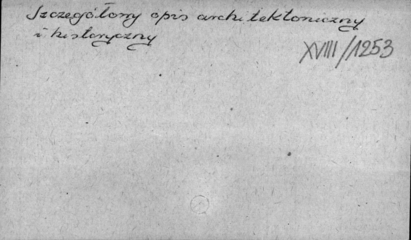 Szczegółowy opis architektoniczny
i historyczny
XVIII/1253